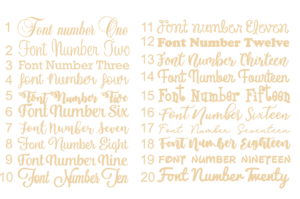 1 Font number One
2 Font Number Two
3 Font Number Three
4 font number four
5 Font Number Two
6 Font Number Six
7 Font Number Seven
8 Font Number Eight
9 Font Number Nine
10 Font Number Ten
11 Font number Eleven
12 Font Number Twelve
13 Font Number Thirteen
14 Font Number Fourteen
15 Font Number Fifteen
16 Font Number Sixteen
17 Font Number Seventeen
18 Font Number Eighteen
19 FONT NUMBER NINETEEN
20 Font Number Twenty